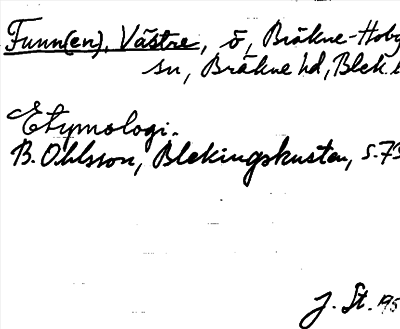 Funn(en), Västre, ö, Bräkne-Hoby
sn, Bräkne hd, Blek.
Etymologi.
B. Ohlsson, Blekingskusten, s. 73
J. St. 195